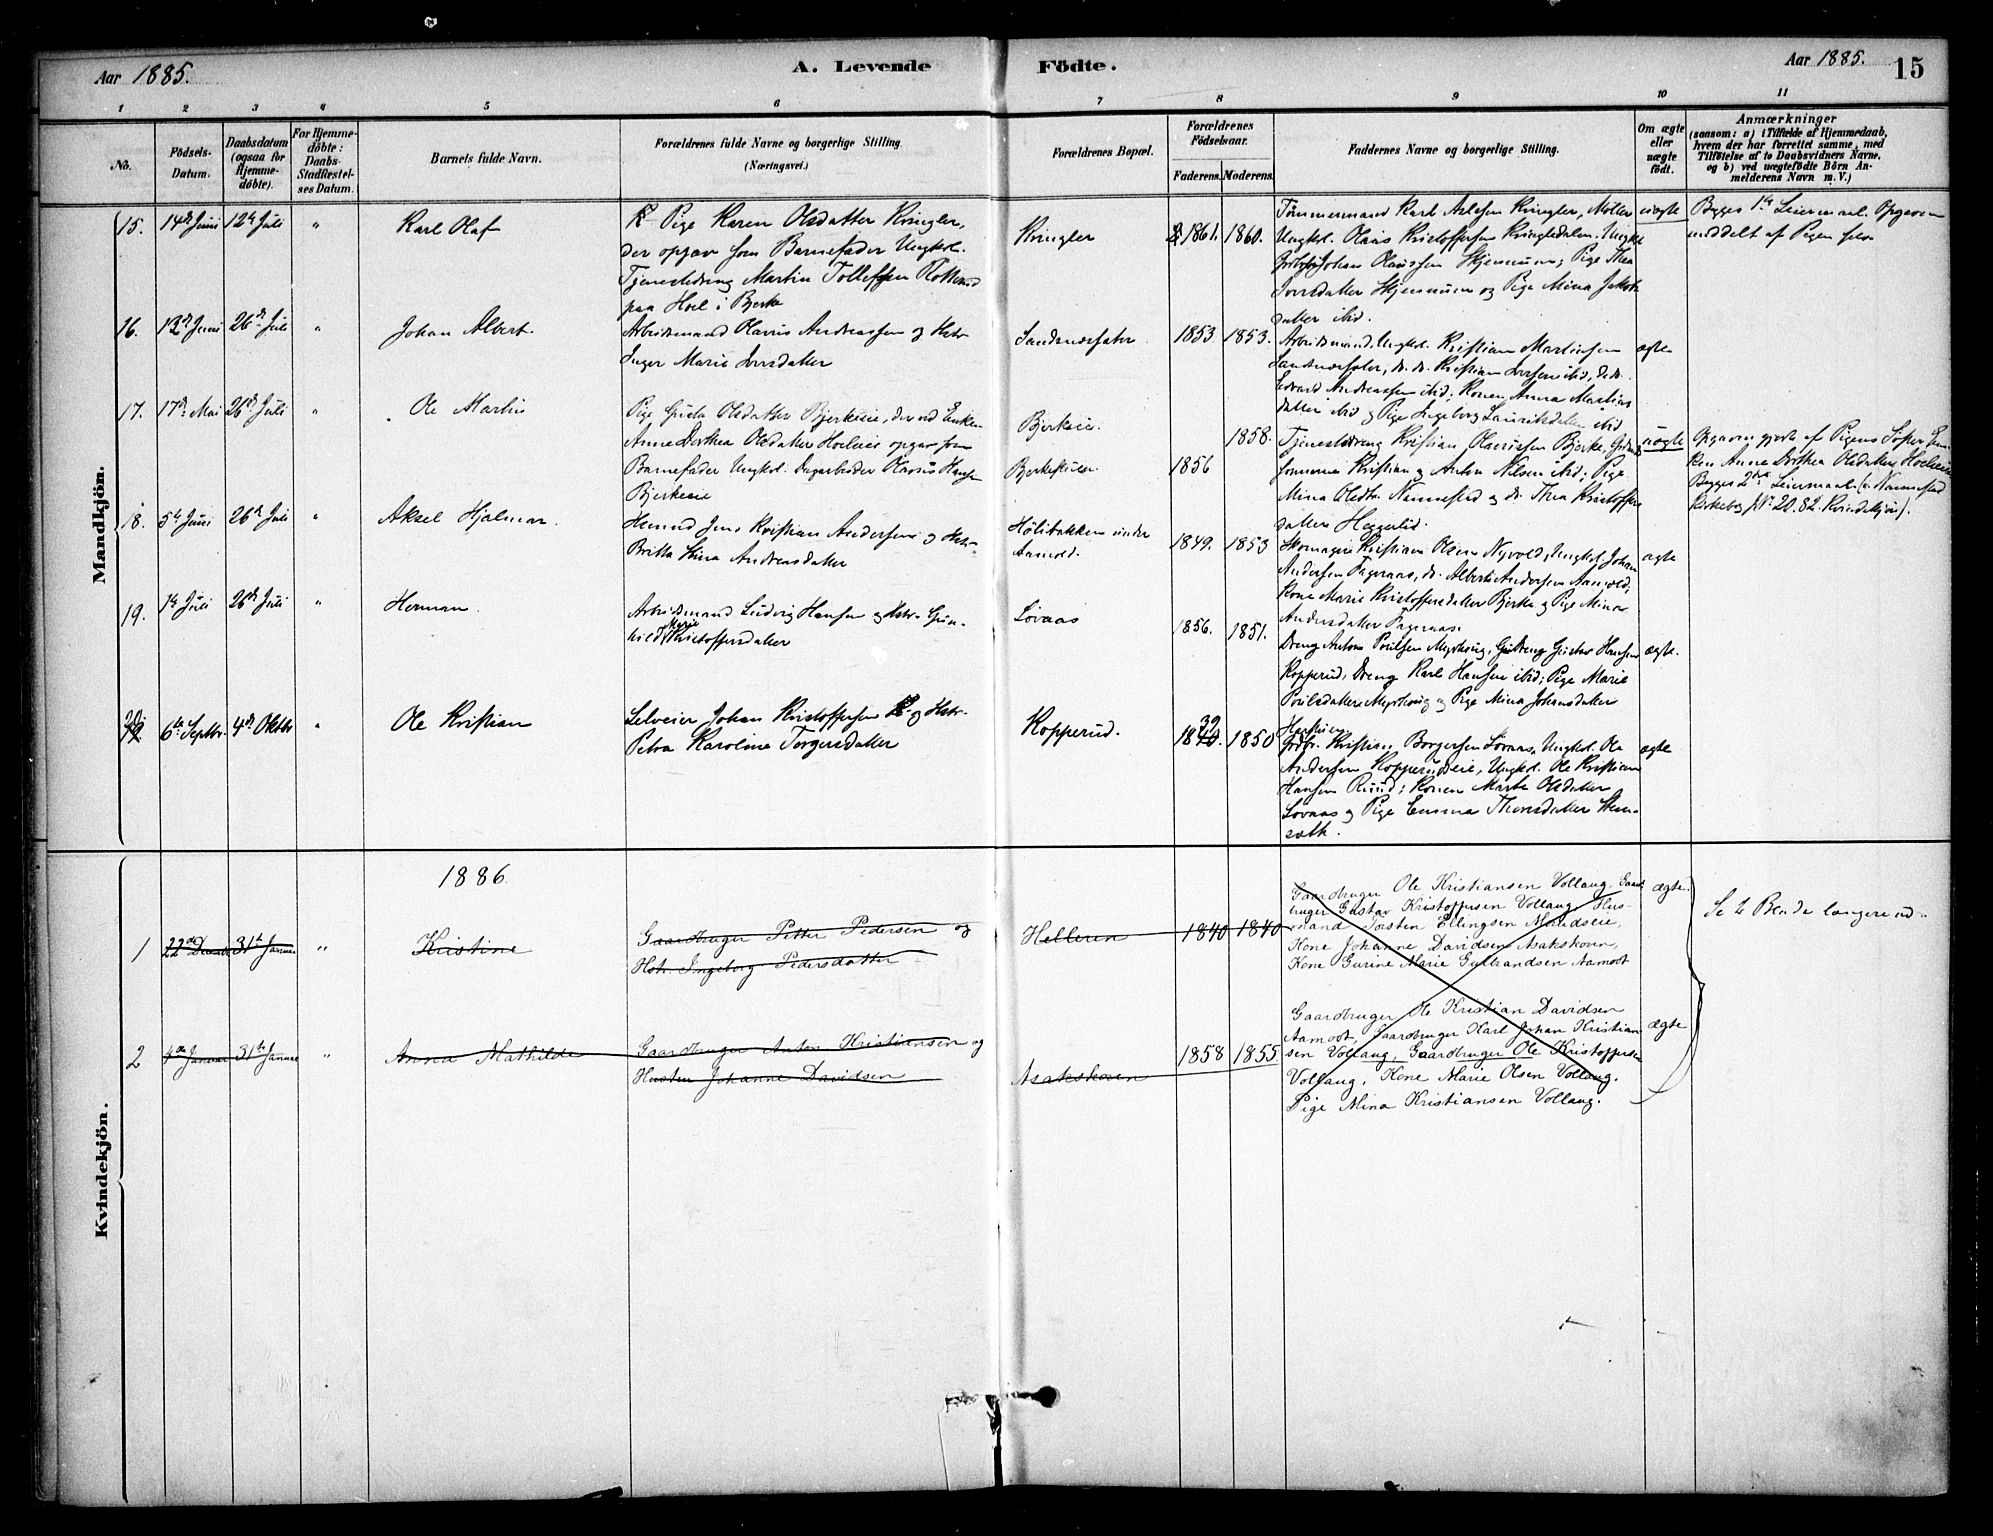 Aar 1885.
A. Levende Födte.
Aar 1885. 15
1 2 3 4 5 6 7 8 9 10 11
No.
Födsels-Datum.
Daabsdatum (ogsaa for Hjemmedöbte).
For Hjemmedöbte: Daabs-Stadfæstelses Datum.
Barnets fulde Navn.
Forældrenes fulde Navne og borgerlige Stilling
(Næringsvei.)
Forældrenes Bopæl.
Forældrenes Födselsaar.
Faderens. Moderens.
Faddernes Navne og borgerlige Stilling.
Om ægte eller uægte födt.
Anmærkninger
(saasom: a) i Tilfælde af Hjemmedaab, hvem der har forrettet samme, med Tilföielse af to Daabsvidners Navne, og b) ved uægtefödte Börn Anmelderens Navn m. V.)
Mandkjön.
15. 14de Juni 12te Juli " Karl Olaf
Pige Karen Olsdatter Kringler,
der opgav som Barnefader Ungkal.
Tjenestedreng Martin Tollefsen
paa Hoel i Bjerke
Kringler 1861. 1860.
Tømmermand Karl Kringler, Møller
Ungkal. Olaus Kristoffersen Kringledalen, Ungk.
Johan Olaussen Skjennum; Pige Thea
Iversdatter Skjennum og Pige Mina Jakobs
datter ibid.
uægte
Begges 1te Leiermaal. Opgaven
meddelt af Pigen selv
16. 12te Juni 26de Juli " Johan Albert.
Arbeidsmand Olavus Andreassen og Hstr.
Inger Marie Iversdatter
1853. 1853.
Arbeidsmand, Ungkal. Kristian Martinsen
Kristian Iversen ibid,
Edvard Andreassen ibid; Konen Anna Martins
datter ibid og Pige Ingeborg ibid
ægte
17. 17de Mai 26de Juli " Ole Martin
Pige Gusta Olsdatter Bjerkeeie, der ved Enken
Anne Dorthea Olsdatter Hoeleie opgav som
Barnefader Ungkal. Dagarbeider Olavus Hansen
Bjerkeeie
Bjerkeeie.
Bjerkestuen
1856 1858.
Tjenestedreng Kristian Olaussen Bjerke,
Kristian og Anton Nilsen ibid; Pige
Mina Olsdtr. Nannestad og do. Thea Kristoffers
datter Heggelid.
uægte
Opgaven gjort af Pigens Søster En-
ken Anne Dorthea Olsdatter Hoeleie
Begges 2det Leiermaal (v. Nannestad
Kirkebog No. 20. 82. Kvindekjön).
18. 5te Juni 26de Juli " Aksel Hjalmar
Jens Kristian Andersen og Hstr.
Britta Stina Andreasdatter
Hölibakken under
Aamold.
1849. 1853
Skomager Kristian Olsen Nyvold, Ungkal. Johan
Andersen Fageraas, do. Albert Andersen Aamold,
Kone Marie Kristoffersdatter Bjerke og Pige Mina
Andersdatter Fageraas.
ægte
19. 1te Juli 26de Juli " Herman.
Arbeidsmand Ludvig Hansen og Hstr. Gun-
hild Marie Kristoffersdatter
Lövaas
1856. 1851.
Dreng Anton Poulsen Myrhaug, Dreng Gustav Hansen
Kopperud, Dreng Karl Hansen ibid; Pige Marie
Poulsdatter Myrhaug og Pige Mina Johansdatter
ægte.
20 6te Septbr. 4de Oktbr " Ole Kristian
Selveier Johan Kristoffersen og Hstr.
Petra Karoline Torgersdatter
Kopperud.
1839 1850
Gdbr. Kristian Borgersen Lövaas, Ungkal. Ole
Andersen Kopperudeie, Ungkal. Ole Kristian
Hansen Ruud; Konen Marte Olsdatter
Lövaas og Pige Emma Thorsdatter Sten-
sæth.
ægte
Kvindekjön.
1886
1 22de Decbr 31te Januar " Kristine
Gaardbruger Petter Pedersen og
Hstr. Ingeborg Pedersdatter
Helleren 1840 1840
Gaardbruger Ole Kristiansen Vollaug, Gaard-
bruger Gustav Kristoffersen Vollaug Hus-
mand Torsten Ellingsen Morudseie,
Kone Johanne Davidsen Asakskoven,
Kone Gurine Marie Gulbrandsen Aamodt
ægte
Se 2 Blade længere ud
2 4de Januar 31te Januar " Anna Mathilde
Gaardbruger Anton Kristiansen og
Hustru Johanne Davidsen
Asakskoven 1858 1855
Gaardbruger Ole Kristian Davidsen
Aamodt, Gaardbruger Karl Johan Kristian-
sen Vollaug, Gaardbruger Ole Kristoffersen
Vollaug, Kone Marie Olsen Vollaug.
Pige Mina Kristiansen Vollaug.
ægte